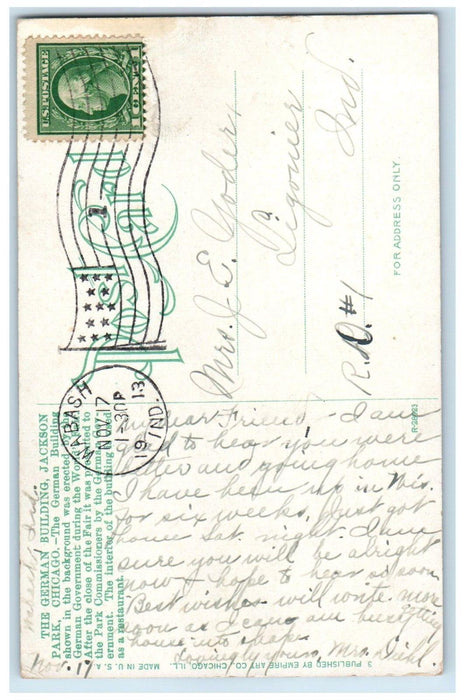 U.S. POSTAGE
1 CENT 1
Post Card
1
WABASH
NOV 17
1-30P
1913
IND.
Mrs. J. E. Yoder,
Ligonier
Ind.
R.D. #1
FOR ADDRESS ONLY.
R-28623
THE GERMAN BUILDING, JACKSON
PARK, CHICAGO.—The German Building
shown in the background was erected by
German Government during the World's
After the close of the Fair it was presented to
the Park Commissioners by the German Gov-
ernment. The interior of the building is used
as a restaurant.
Ind.
Nov. 17
My Dear Friend - I am
glad to hear you were
better and going home
I have been up in Wis.
for six weeks, Just got
home Sat. night. I am
sure you will be alright
now - hope to hear so soon
Best wishes will write more
soon as I can, am busy getting
house into shape.
Lovingly yours, Mrs. Diehl.
3 PUBLISHED BY EMPIRE ART CO., CHICAGO, ILL.
MADE IN U. S. A.